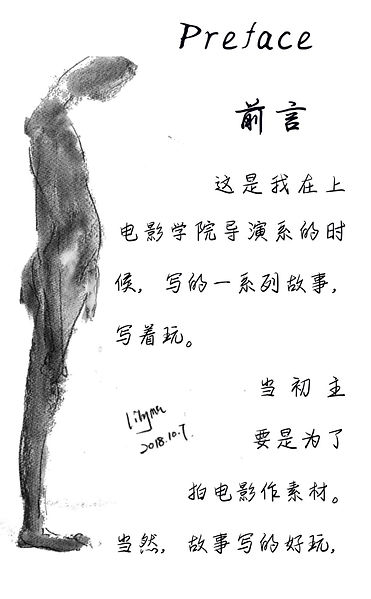 Preface
前言
这是我在上
电影学院导演系的时
候，写的一系列故事，
写着玩。
当初主
要是为了
拍电影作素材。
当然，故事写的好玩，
2018.10.7.